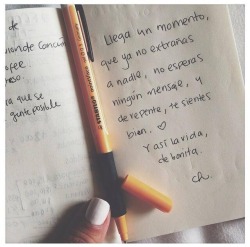 de
Llega un momento,
que ya no extrañas
a nadie, no esperas
ningún mensaje, y
de repente, te sientes
bien. ♡
Y así la vida,
de bonita.
ch.
que se
gente posible
STABILO